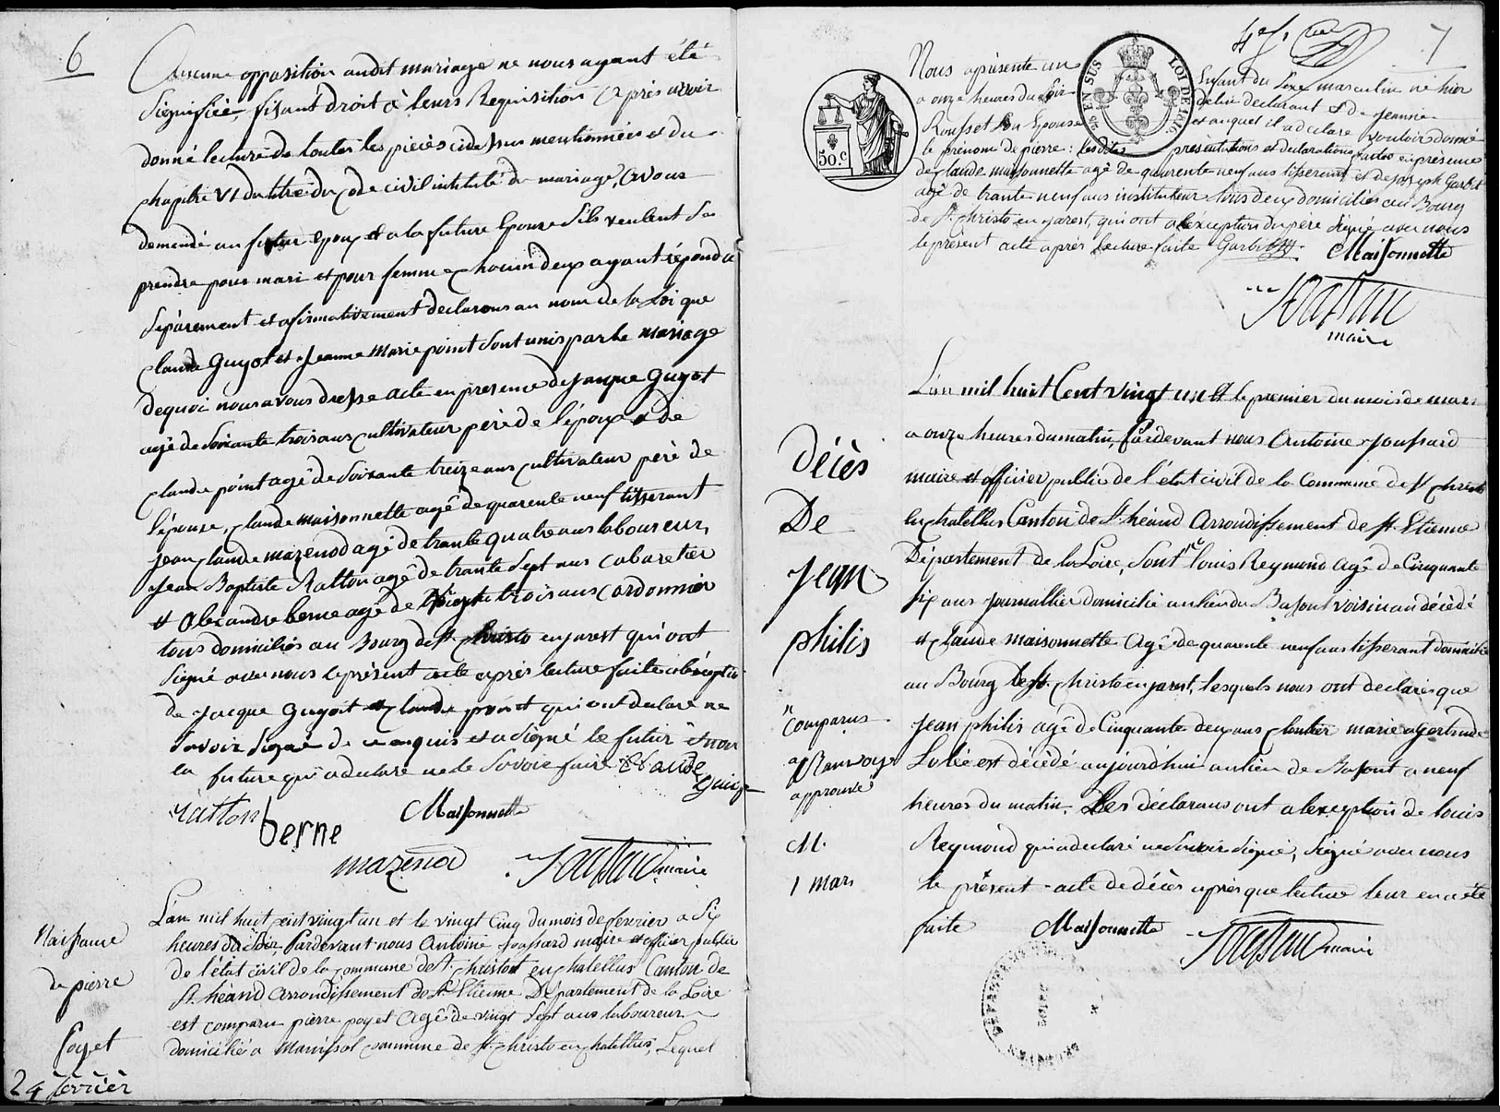 6
Aucune opposition audit mariage ne nous ayant été
signifiée, fisant droit à leurs Requisition après avoir
donné lecture de toutes les pièces cidessus mentionnées et du
chapitre VI du titre du Code civil intitulé du mariage, avons
demendé au futur Epoux et a la future Epouse s'ils veulent se
prendre pour mari et pour femme chacun deux ayant répondu
séparemant et afirmativement declarons au nom de la Loi que
Claude Guyot et Jeanne Marie point sont unis par le mariage
dequoi nous avons dressé acte en presence de Jacque Guyot
agé de soixante trois ans cultivateur père de l'époux et de
Claude point agé de soixante treize ans cultivateur père de
l'épouse, Claude maisonnette agé de quarente neuf tisserant
Jean Claude mazenod agé de trante quatre ans laboureur,
Jean Baptiste Ratton agé de trante sept ans cabaretier
et Alexandre berne agé de trois ans Cordonnier
tous domiciliés au Bourg de St. Christo en jarest qui ont
signé avec nous le présent acte après lecture faite a l'exception
de Jacque Guyot et Claude point qui ont declaré ne
savoir signé de ce enquis et a signé le futur et non
la future qui a declaré ne le savoir faire Claude
Guiot
ratton
berne
Maisonnette
mazenod
Joussard maire
Naissance
de pierre
poyet
24 février
L'an mil huit cent vingt un et le vingt cinq du mois de fevrier a six
heures du soir, Pardevant nous Antoine Joussard maire et officier public
de l'état civil de la commune de St. Christo en chatellus Canton de
St. héand arrondissement de St. Etienne Département de la Loire
est comparu pierre poyet agé de vingt sept ans laboureur
domicilié a commune de St. Christo en chatellus, Lequel
7
Nous a présenté un Enfant du sexe masculin né hier
a onze heures du soir de lui declarant et de jeanne
Rousset sa Epouse et auquel il a declaré vouloir donné
le prénom de pierre: Lesdites présentations et declarations faites en présence
de Claude maisonnette agé de quarente neuf ans tisserant et de joseph Garbit
agé de trante neuf ans instituteur tous deux domiciliés au Bourg
de St. Christo en jarest, qui ont a l'exception du père signé avec nous
le présent acte après Lecture faite Garbit
Maisonnette
Joussard
maire
50.c
EN SUS
LOI DE 1816
décès
De
Jean
philis
L'an mil huit Cent vingt un et le premier du mois de mars
a onze heures du matin, Pardevant nous Antoine Joussard
maire et officier public de l'état civil de la Commune de St Christo
en chatellus Canton de St. héand Arrondissement de St. Etienne
Département de la Loire, sont louis Reymond agé de Cinquante
six ans journallier domicilié au lieu du Bafont voisin au décédé
et Claude maisonnette agé de quarente neuf ans tisserant domicilié
au Bourg de St. Christo en jarest, lesquels nous ont declarés que
Jean philis agé de Cinquante deux ans marie
est décédé aujourdhui au lieu de Bafont a neuf
heures du matin. Les déclarans ont a l'exception de louis
Reymond qui a declaré ne savoir signé, signé avec nous
le présent acte de décès après que lecture leur en a été
faite
Maisonnette
Joussard maire
comparus
Renvoy
approuvé
M.
1 mars